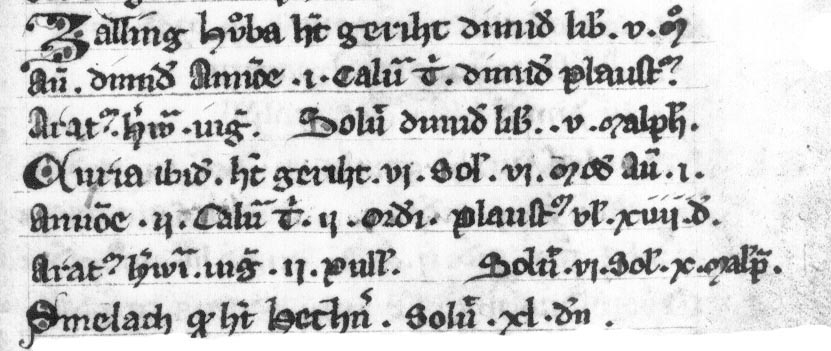 Zalling hůba ht geriht dimid lib. v. m̊
Au. dimid Annōe . i . Calu T. dimid plaust
Arat. hiw . iug. Solu dimid lib . . v . malph.
Curia ibid . ht geriht . vi . Sol . vi . Mod Au . i .
Annōe . ii . Calu T . ii . ordi . plaust vl . xiiii . d .
Arat hiwi . iug . ii . pull . Solu . vi . Sol . x . malp .
Smelach ht hechn . Solu . xl . dn .